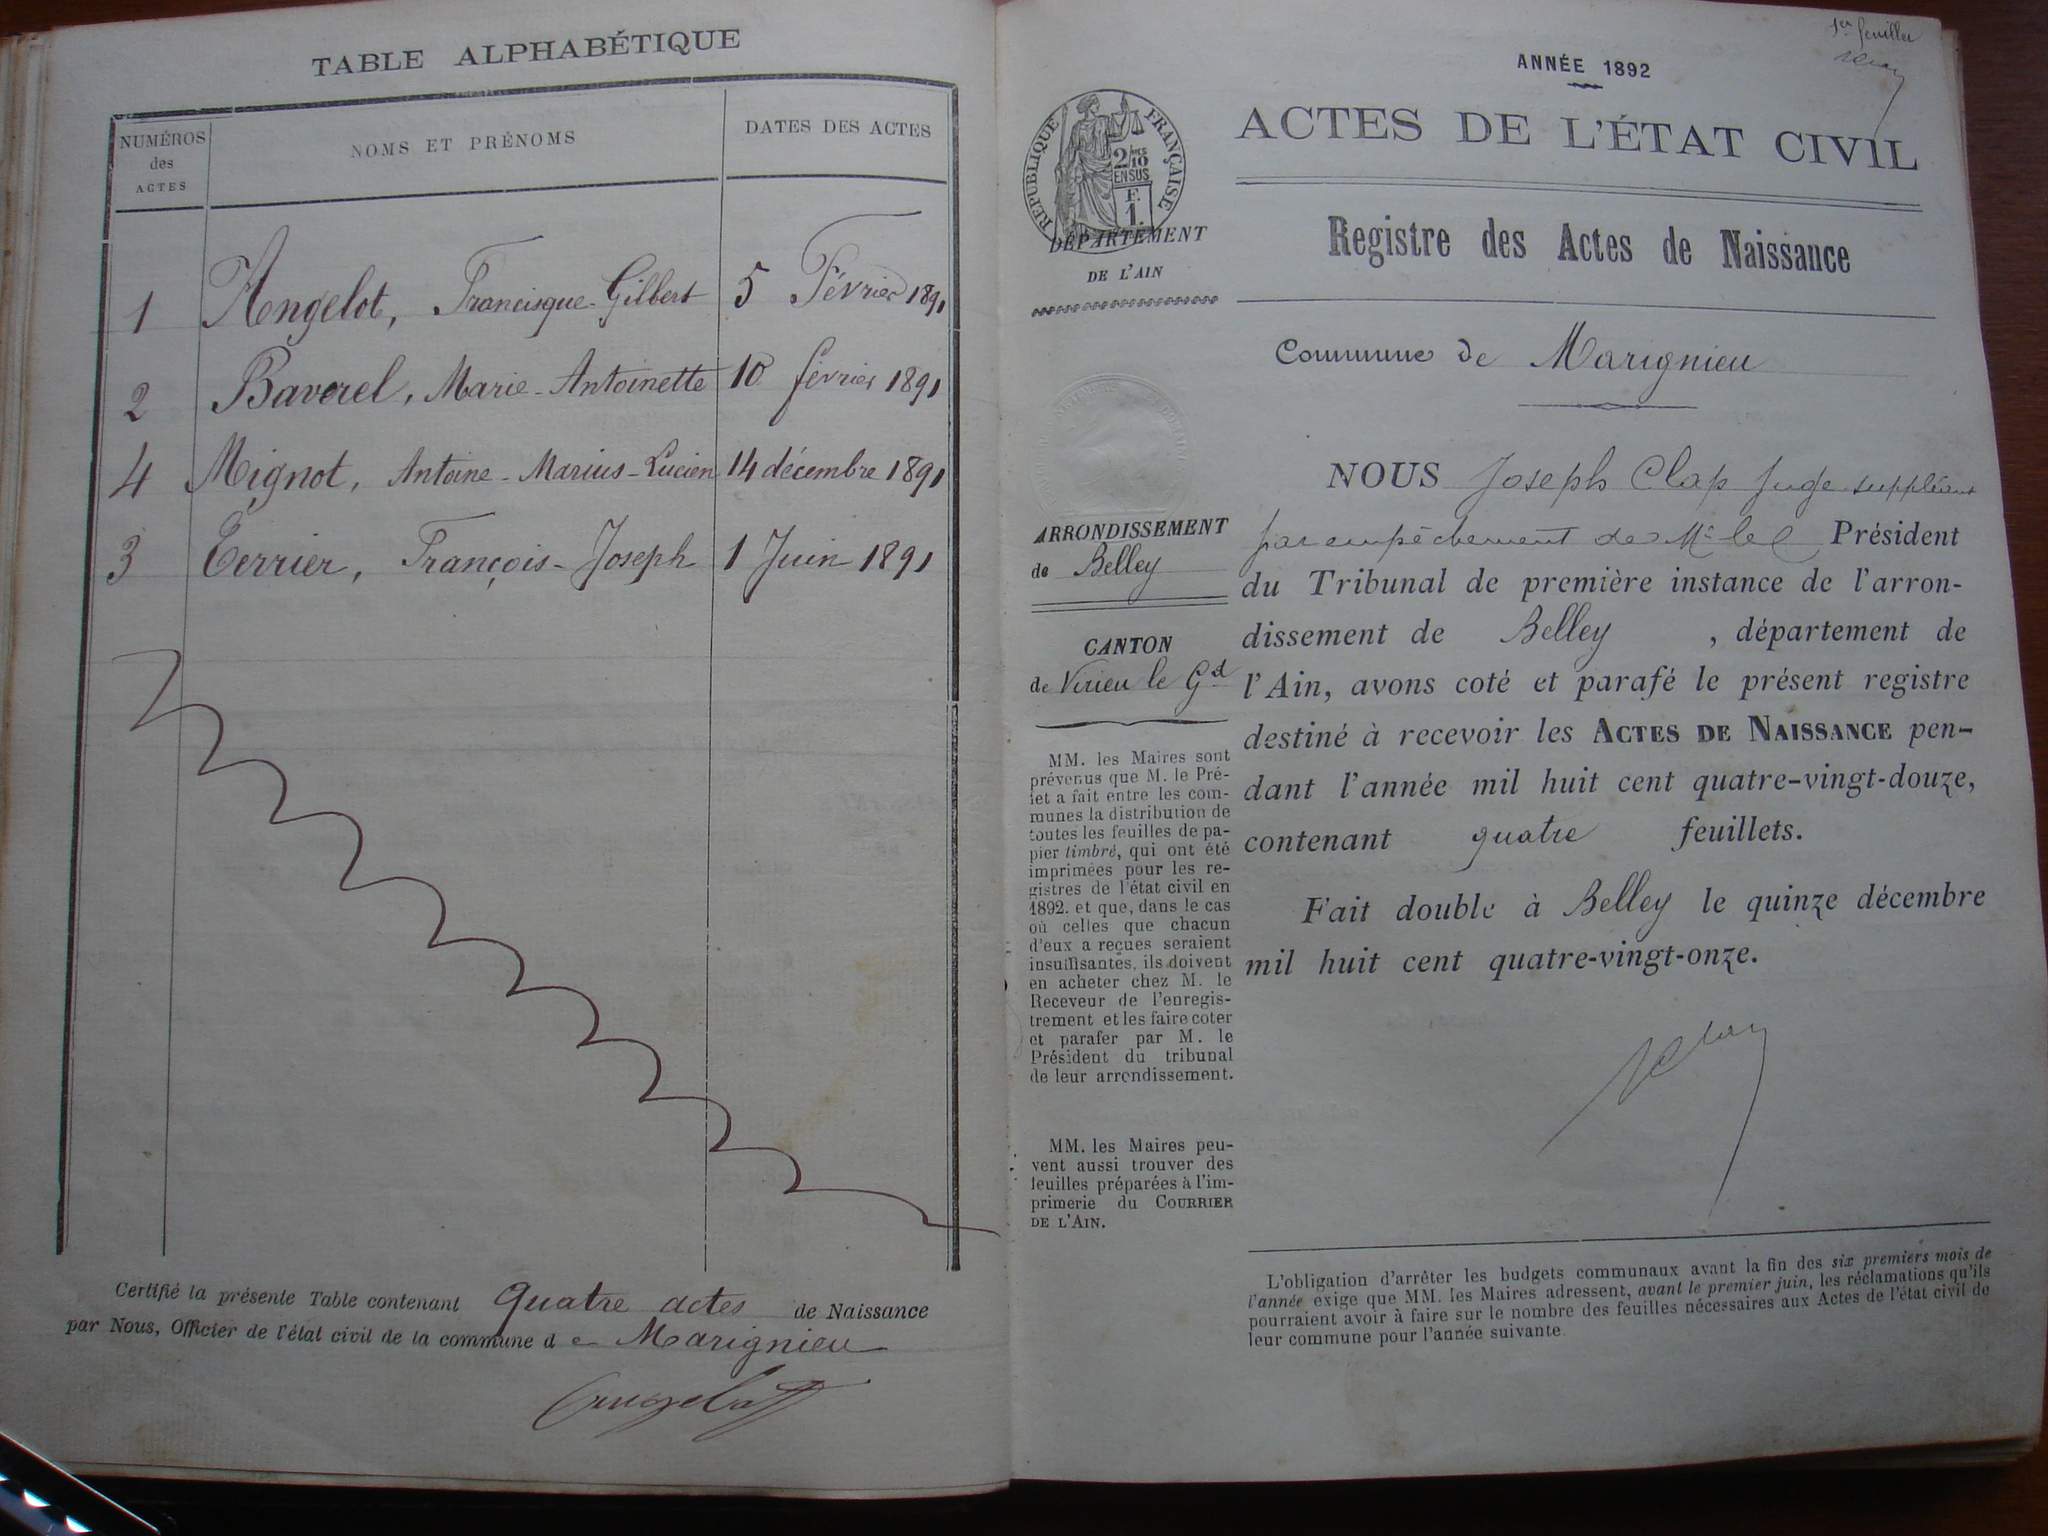 TABLE ALPHABÉTIQUE
NUMÉROS des ACTES
NOMS ET PRÉNOMS
DATES DES ACTES
1 Angelot, Francisque-Gilbert 5 Février 1891
2 Baverel, Marie-Antoinette 10 février 1891
4 Mignot, Antoine-Marius-Lucien 14 décembre 1891
3 Terrier, François-Joseph 1 Juin 1891
Certifié la présente Table contenant quatre actes de Naissance
par Nous, Officier de l'état civil de la commune d e Marignieu
Angelot
1er feuillet
ANNÉE 1892
ACTES DE L'ÉTAT CIVIL
Registre des Actes de Naissance
RÉPUBLIQUE FRANÇAISE
2/10
EN SUS
F.
1.
DÉPARTEMENT
DE L'AIN
Commune de Marignieu
ARRONDISSEMENT
de Belley
CANTON
de Virieu le Gd
MM. les Maires sont
prévenus que M. le Pré-
fet a fait entre les com-
munes la distribution de
toutes les feuilles de pa-
pier timbré, qui ont été
imprimées pour les re-
gistres de l'état civil en
1892. et que, dans le cas
où celles que chacun
d'eux a reçues seraient
insuffisantes, ils doivent
en acheter chez M. le
Receveur de l'enregis-
trement et les faire coter
et parafer par M. le
Président du tribunal
de leur arrondissement.
MM. les Maires peu-
vent aussi trouver des
feuilles préparées à l'im-
primerie du COURRIER
DE L'AIN.
NOUS Joseph Clap Juge suppléant
par empêchement de Mr le Président
du Tribunal de première instance de l'arron-
dissement de Belley , département de
l'Ain, avons coté et parafé le présent registre
destiné à recevoir les ACTES DE NAISSANCE pen-
dant l'année mil huit cent quatre-vingt-douze,
contenant quatre feuillets.
Fait double à Belley le quinze décembre
mil huit cent quatre-vingt-onze.
L'obligation d'arrêter les budgets communaux avant la fin des six premiers mois de
l'année exige que MM. les Maires adressent, avant le premier juin, les réclamations qu'ils
pourraient avoir à faire sur le nombre des feuilles nécessaires aux Actes de l'état civil de
leur commune pour l'année suivante.